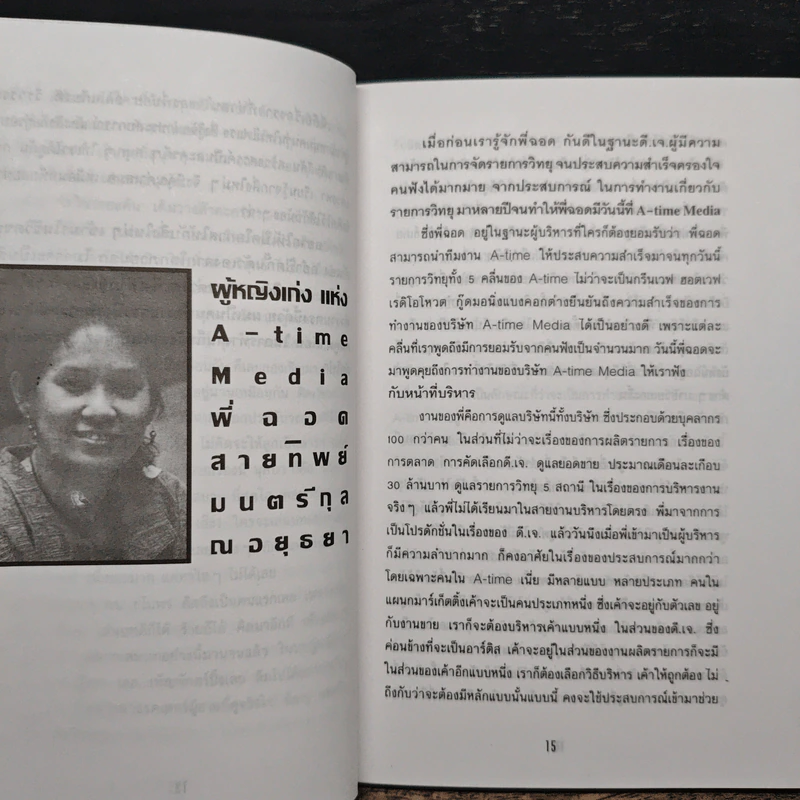 ผู้หญิงเก่ง แห่ง
A - time
Media
พี่ ฉอด
สายทิพย์
มนตรีกุล
ณ อยุธยา
เมื่อก่อนเรารู้จักพี่ฉอด กันดีในฐานะดี.เจ.ผู้มีความ
สามารถในการจัดรายการวิทยุ จนประสบความสำเร็จครองใจ
คนฟังได้มากมาย จากประสบการณ์ ในการทำงานเกี่ยวกับ
รายการวิทยุ มาหลายปีจนทำให้พี่ฉอดมีวันนี้ที่ A-time Media
ซึ่งพี่ฉอด อยู่ในฐานะผู้บริหารที่ใครก็ต้องยอมรับว่า พี่ฉอด
สามารถนำทีมงาน A-time ให้ประสบความสำเร็จมาจนทุกวันนี้
รายการวิทยุทั้ง 5 คลื่นของ A-time ไม่ว่าจะเป็นกรีนเวฟ ฮอตเวฟ
เรดิโอโหวต กู๊ดมอนิ่งแบงคอกต่างยืนยันถึงความสำเร็จของการ
ทำงานของบริษัท A-time Media ได้เป็นอย่างดี เพราะแต่ละ
คลื่นที่เราพูดถึงมีการยอมรับจากคนฟังเป็นจำนวนมาก วันนี้พี่ฉอดจะ
มาพูดคุยถึงการทำงานของบริษัท A-time Media ให้เราฟัง
กับหน้าที่บริหาร
งานของพี่คือการดูแลบริษัทนี้ทั้งบริษัท ซึ่งประกอบด้วยบุคลากร
100 กว่าคน ในส่วนที่ไม่ว่าจะเรื่องของการผลิตรายการ เรื่องของ
การตลาด การคัดเลือกดี.เจ. ดูแลยอดขาย ประมาณเดือนละเกือบ
30 ล้านบาท ดูแลรายการวิทยุ 5 สถานี ในเรื่องของการบริหารงาน
จริงๆ แล้วพี่ไม่ได้เรียนมาในสายงานบริหารโดยตรง พี่มาจากการ
เป็นโปรดักชั่นในเรื่องของ ดี.เจ. แล้ววันนึงเมื่อพี่เข้ามาเป็นผู้บริหาร
ก็มีความลำบากมาก ก็คงอาศัยในเรื่องของประสบการณ์มากกว่า
โดยเฉพาะคนใน A-time เนี่ย มีหลายแบบ หลายประเภท คนใน
แผนกมาร์เกตติ้งเค้าจะเป็นคนประเภทหนึ่ง ซึ่งเค้าจะอยู่กับตัวเลข อยู่
กับงานขาย เราก็จะต้องบริหารเค้าแบบหนึ่ง ในส่วนของดี.เจ. ซึ่ง
ค่อนข้างที่จะเป็นอาร์ติส เค้าจะอยู่ในส่วนของงานผลิตรายการก็จะมี
ในส่วนของเค้าอีกแบบหนึ่ง เราก็ต้องเลือกวิธีบริหาร เค้าให้ถูกต้อง ไม่
ถึงกับว่าจะต้องมีหลักแบบนั้นแบบนี้ คงจะใช้ประสบการณ์เข้ามาช่วย
15